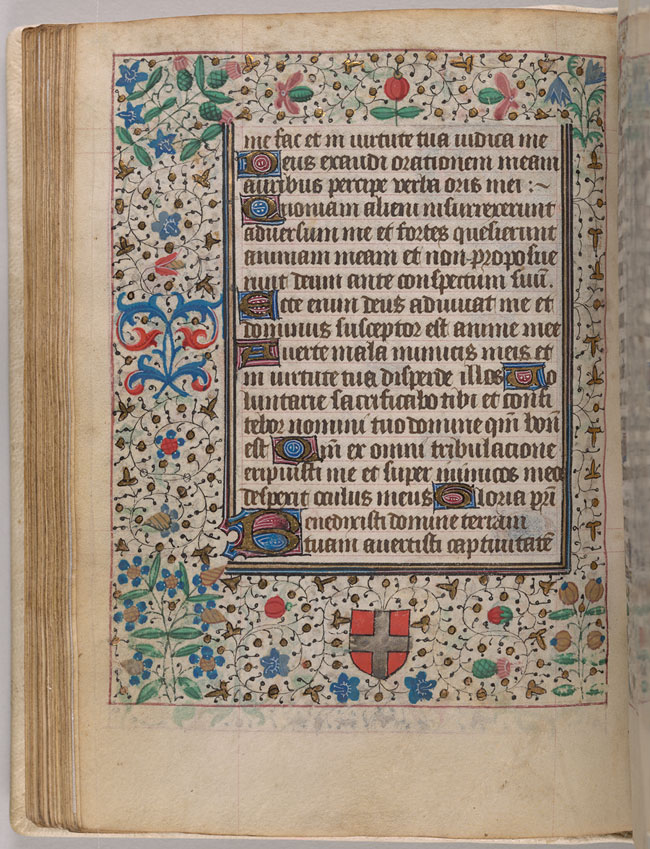 me fac et in uirtute tua iudica me
Deus exaudi orationem meam
auribus percipe verba oris mei :~
Quoniam alieni insurrexerunt
adversum me et fortes quesierunt
animam meam et non proposue
runt deum ante conspectum suu̅.
Ecce enim deus adiuuat me et
dominus susceptor est anime mee
Auerte mala inimicis meis et
in uirtute tua disperde illos Vo
luntarie sacrificabo tibi et confi
tebor nomini tuo domine qm̅ bonu̅
est Qm̅ ex omni tribulacione
eripuisti me et super inimicos meos
despexit oculus meus Gloria pr̅i
Benedixisti domine terram
tuam auertisti captiuitate̅